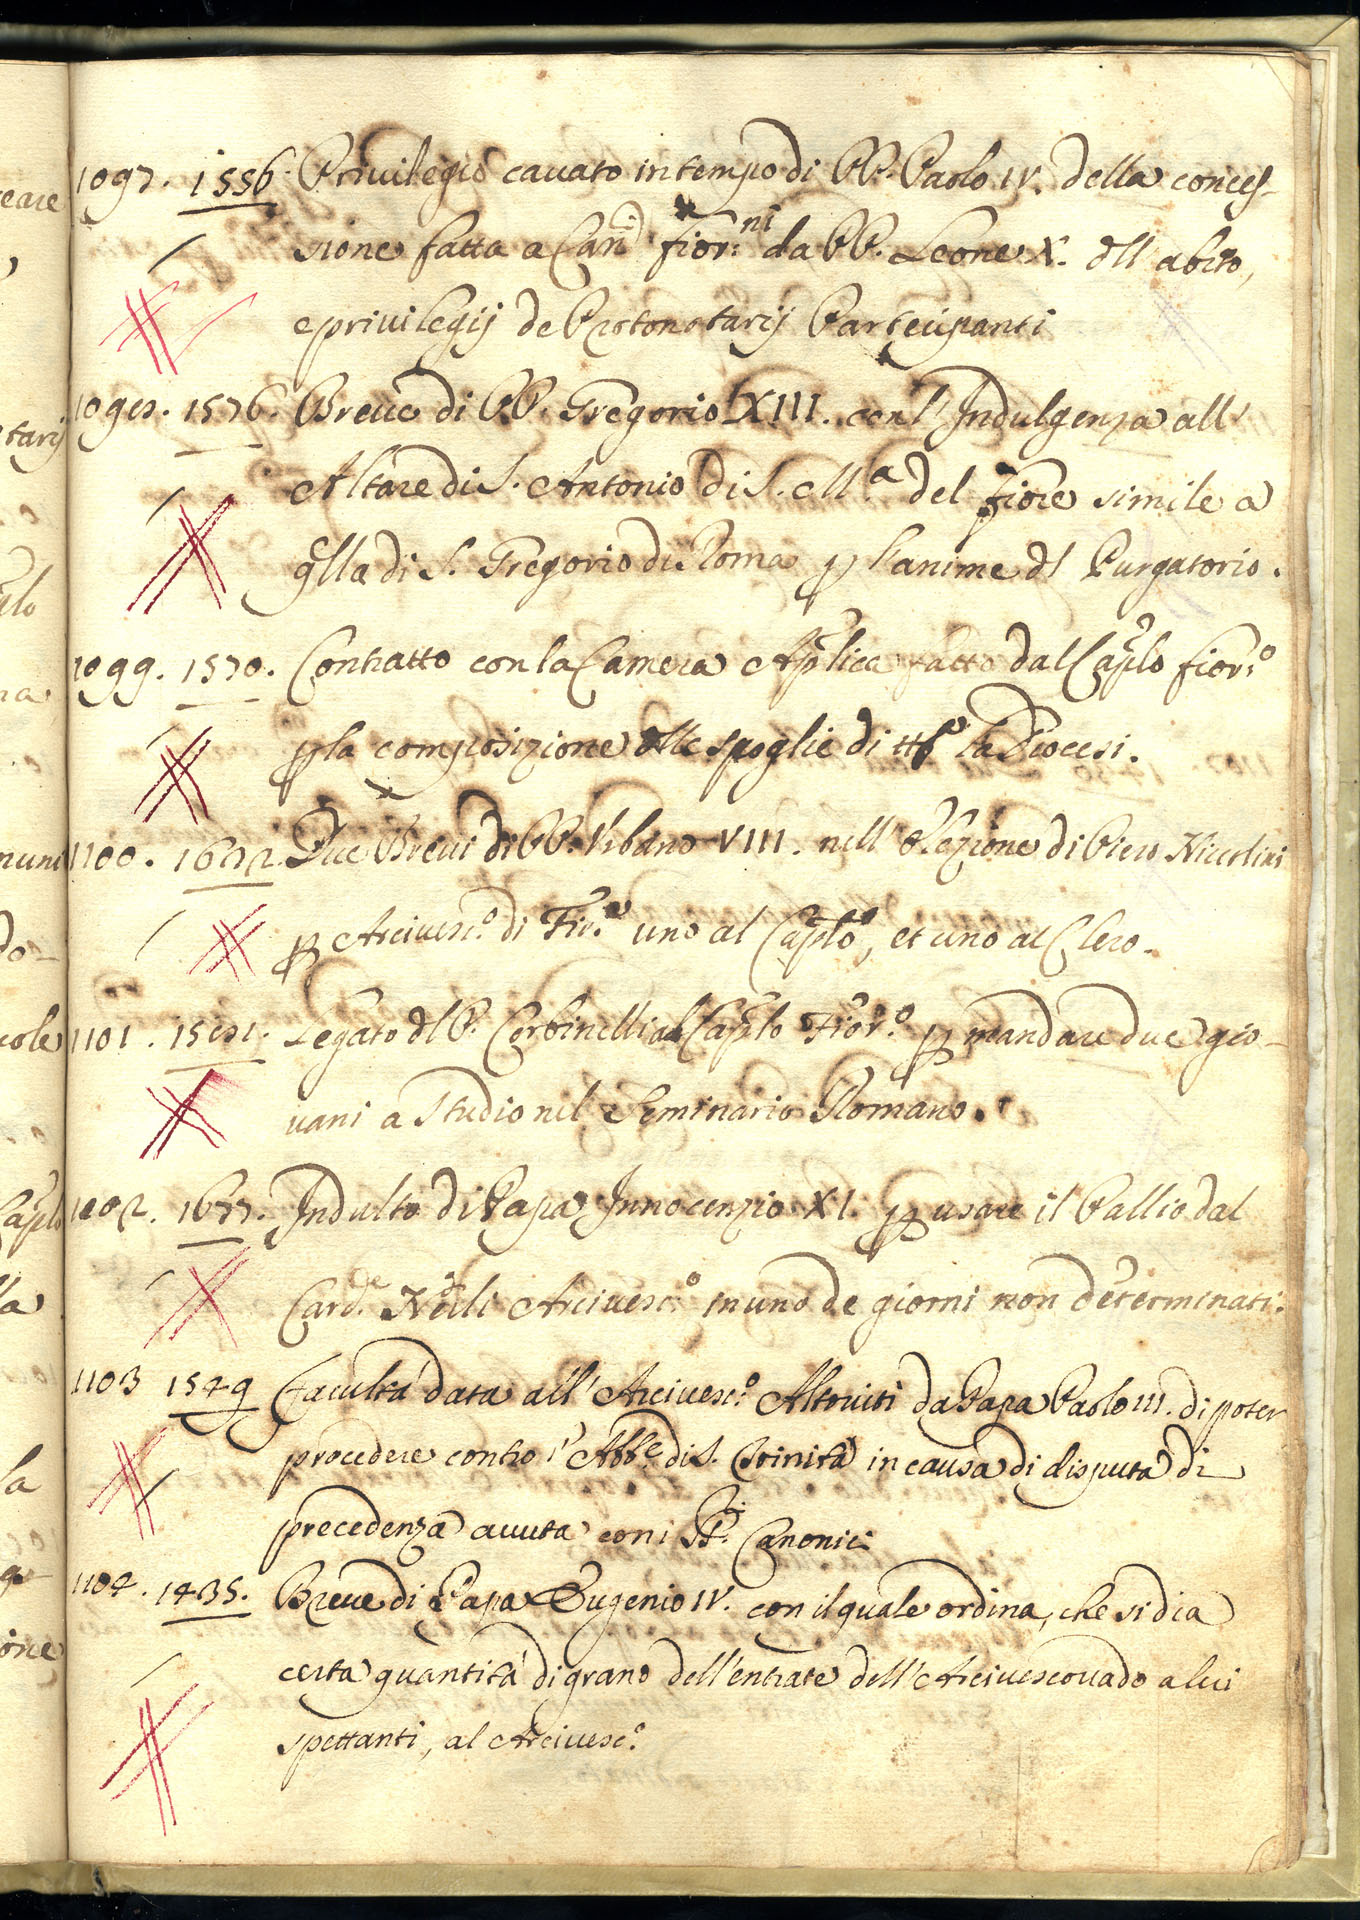 1097. 1556. Privilegio cauato in tempo di PP. Paolo IV. della conces-
sione fatta a Can.ci fior.ni da PP. Leone X. dll abito,
e privilegij de Protonotarij Partecipanti
1098. 1576. Breue di PP. Gregorio XIII. con l'Indulgenza all'
Altare di S. Antonio di S. M.a del fiore simile a
qlla di S. Gregorio di Roma p l'anime dl Purgatorio.
1099. 1570. Contratto con la Camera Aplica fatto dal Caplo fior.o
p la composizione dlle spoglie di tt.a la Diocesi.
1100. 1632. Due Breui di PP. Vrbano VIII. nell' Elezione di Piero Niccolini
p Arciuesc.o di Fir.e uno al Caplo, et uno al Clero.
1101. 1591. Legato dl P. Corbinelli al Caplo Fior.o p mandare due gio-
uani a Studio nel Seminario Romano.
1102. 1677. Indulto di Papa Innocenzio XI. p usare il Pallio dal
Card.le Nerli Arciuesc.o in uno de giorni non determinati.
1103 1549 Facultà data all' Arciuesc.o Altouiti da Papa Paolo III. di poter
procedere contro l' Abb.e di S. Trinita in causa di disputa di
precedenza auuta con i SS.ri Canonici
1104. 1435. Breue di Papa Eugenio IV. con il quale ordina, che si dia
certa quantità di grano dell'entrate dell'Arciuescouado a lui
spettanti, al Arciuesc.o